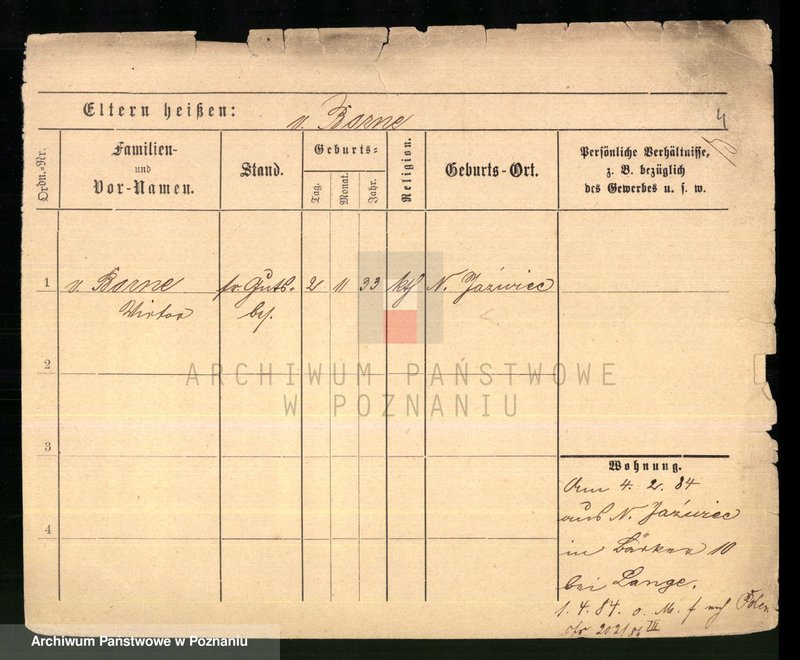 Eltern heißen: v. Borne
4
Ordn.-Nr.
Familien-
und
Vor-Namen.
Stand.
Geburts-
Tag.
Monat.
Jahr.
Religion.
Geburts-Ort.
Persönliche Verhältnisse,
z. B. bezüglich
des Gewerbes u. s. w.
1 v. Borne fr. Guts- 2 11 33 kth N. Jaźwiec
Victor bes.
2
3
4
Wohnung.
Am 4. 2. 84
aus N. Jaźwiec
in Bäcker 10
bei Lange.
1. 4. 84. o. M. f nach Polen
202/86 III
ARCHIWUM PAŃSTWOWE
W POZNANIU
Archiwum Państwowe w Poznaniu